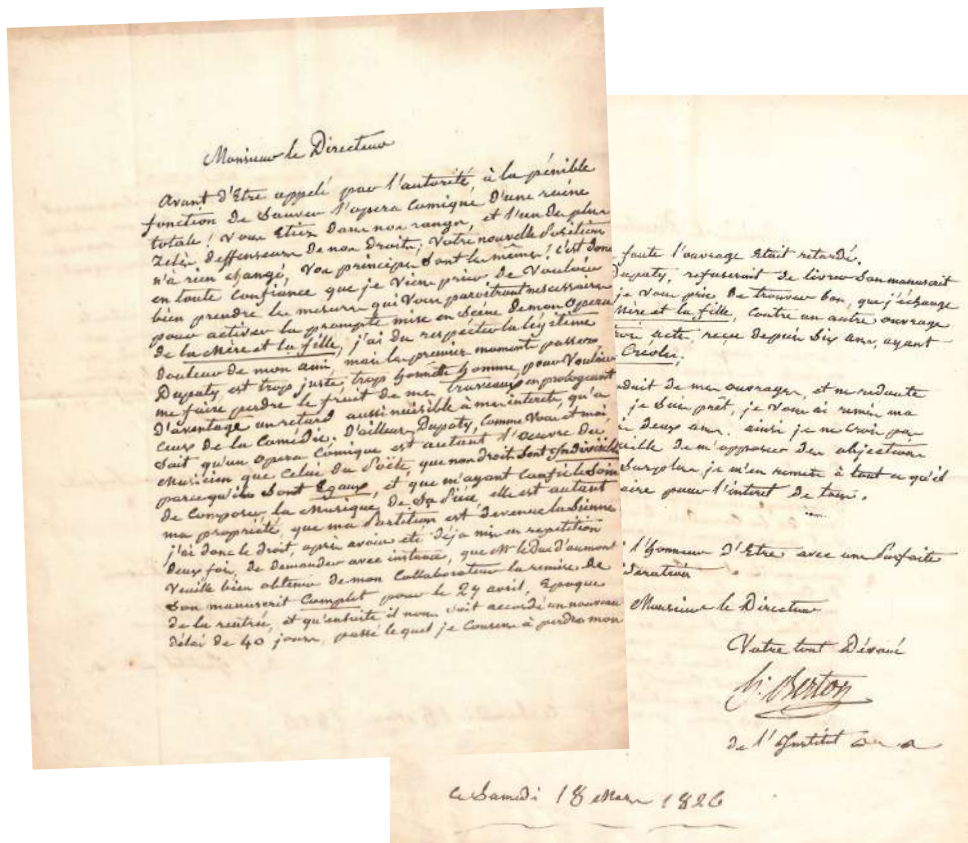 Monsieur le Directeur
Avant d'Etre appelé par l'autorité, à la pénible
fonction de Sauver l'opera Comique d'une ruine
totale! Vous Etiez dans nos rangs, et l'un des plus
Zelés deffenseurs de nos Droits, Votre nouvelle Position
n'a rien changé, Vos principes Sont les mêmes! C'est donc
en toute Confiance que je Viens vous prier de Vouloir
bien prendre les mesures qui Vous paroitront nescessaires
pour activer la prompte mise en Scène de mon Opera
de la Mère et la fille, j'ai du respecter la légitime
douleur de mon ami, mais les premiers moments passés
Dupaty, est trop juste, trop honnête homme, pour Vouloir
me faire perdre le fruit de mes travaux, en prolongeant
D'avantage un retard aussi nuisible à mes interets, qu'a
Ceux de la Comédie. D'ailleurs Dupaty, Comme Vous et moi
Sait qu'un Opera Comique est autant l'oeuvre du
Musicien que Celui du Poëte, que nos droits Sont Indivisibles
parcequ'ils Sont Egaux, et que m'ayant Confié le Soin
de Composer la Musique de Sa Pièce elle est autant
ma propriété, que ma Partition est devenue la Sienne
j'ai donc le droit, après avoir été déja mis en repetition
deux fois, de demander avec instance, que Mr le Duc d'aumont
Veuille bien obtenir de mon Collaborateur la remise de
Son manuscrit Complet pour le 29 avril, Epoque
de la rentrée, et qu'ensuite il nous Soit accordé un nouveau
délai de 40 jours, passé lequel je Consens à perdre mon
faute l'ouvrage était retardé.
Dupaty, refuserait de livrer Son manuscrit
je Vous prie De trouver bon, que j'échange
Mère et la fille, Contre un autre ouvrage
trois acte, reçu depuis Six ans, ayant
Créoles,
duit de mes ouvrages, et ne redoute
je Suis prêt, je Vous ai remis ma
deux ans! ainsi je ne Crois pas
de m'opposer des objections
Surplus je m'en remets à tout ce qu'il
aire pour l'interet de tous.
l'honneur D'Etre avec une Parfaite
idération
Monsieur le Directeur
Votre tout Dévoué
h. Berton
de l'Institut
Ce Samedi 18 Mars 1826